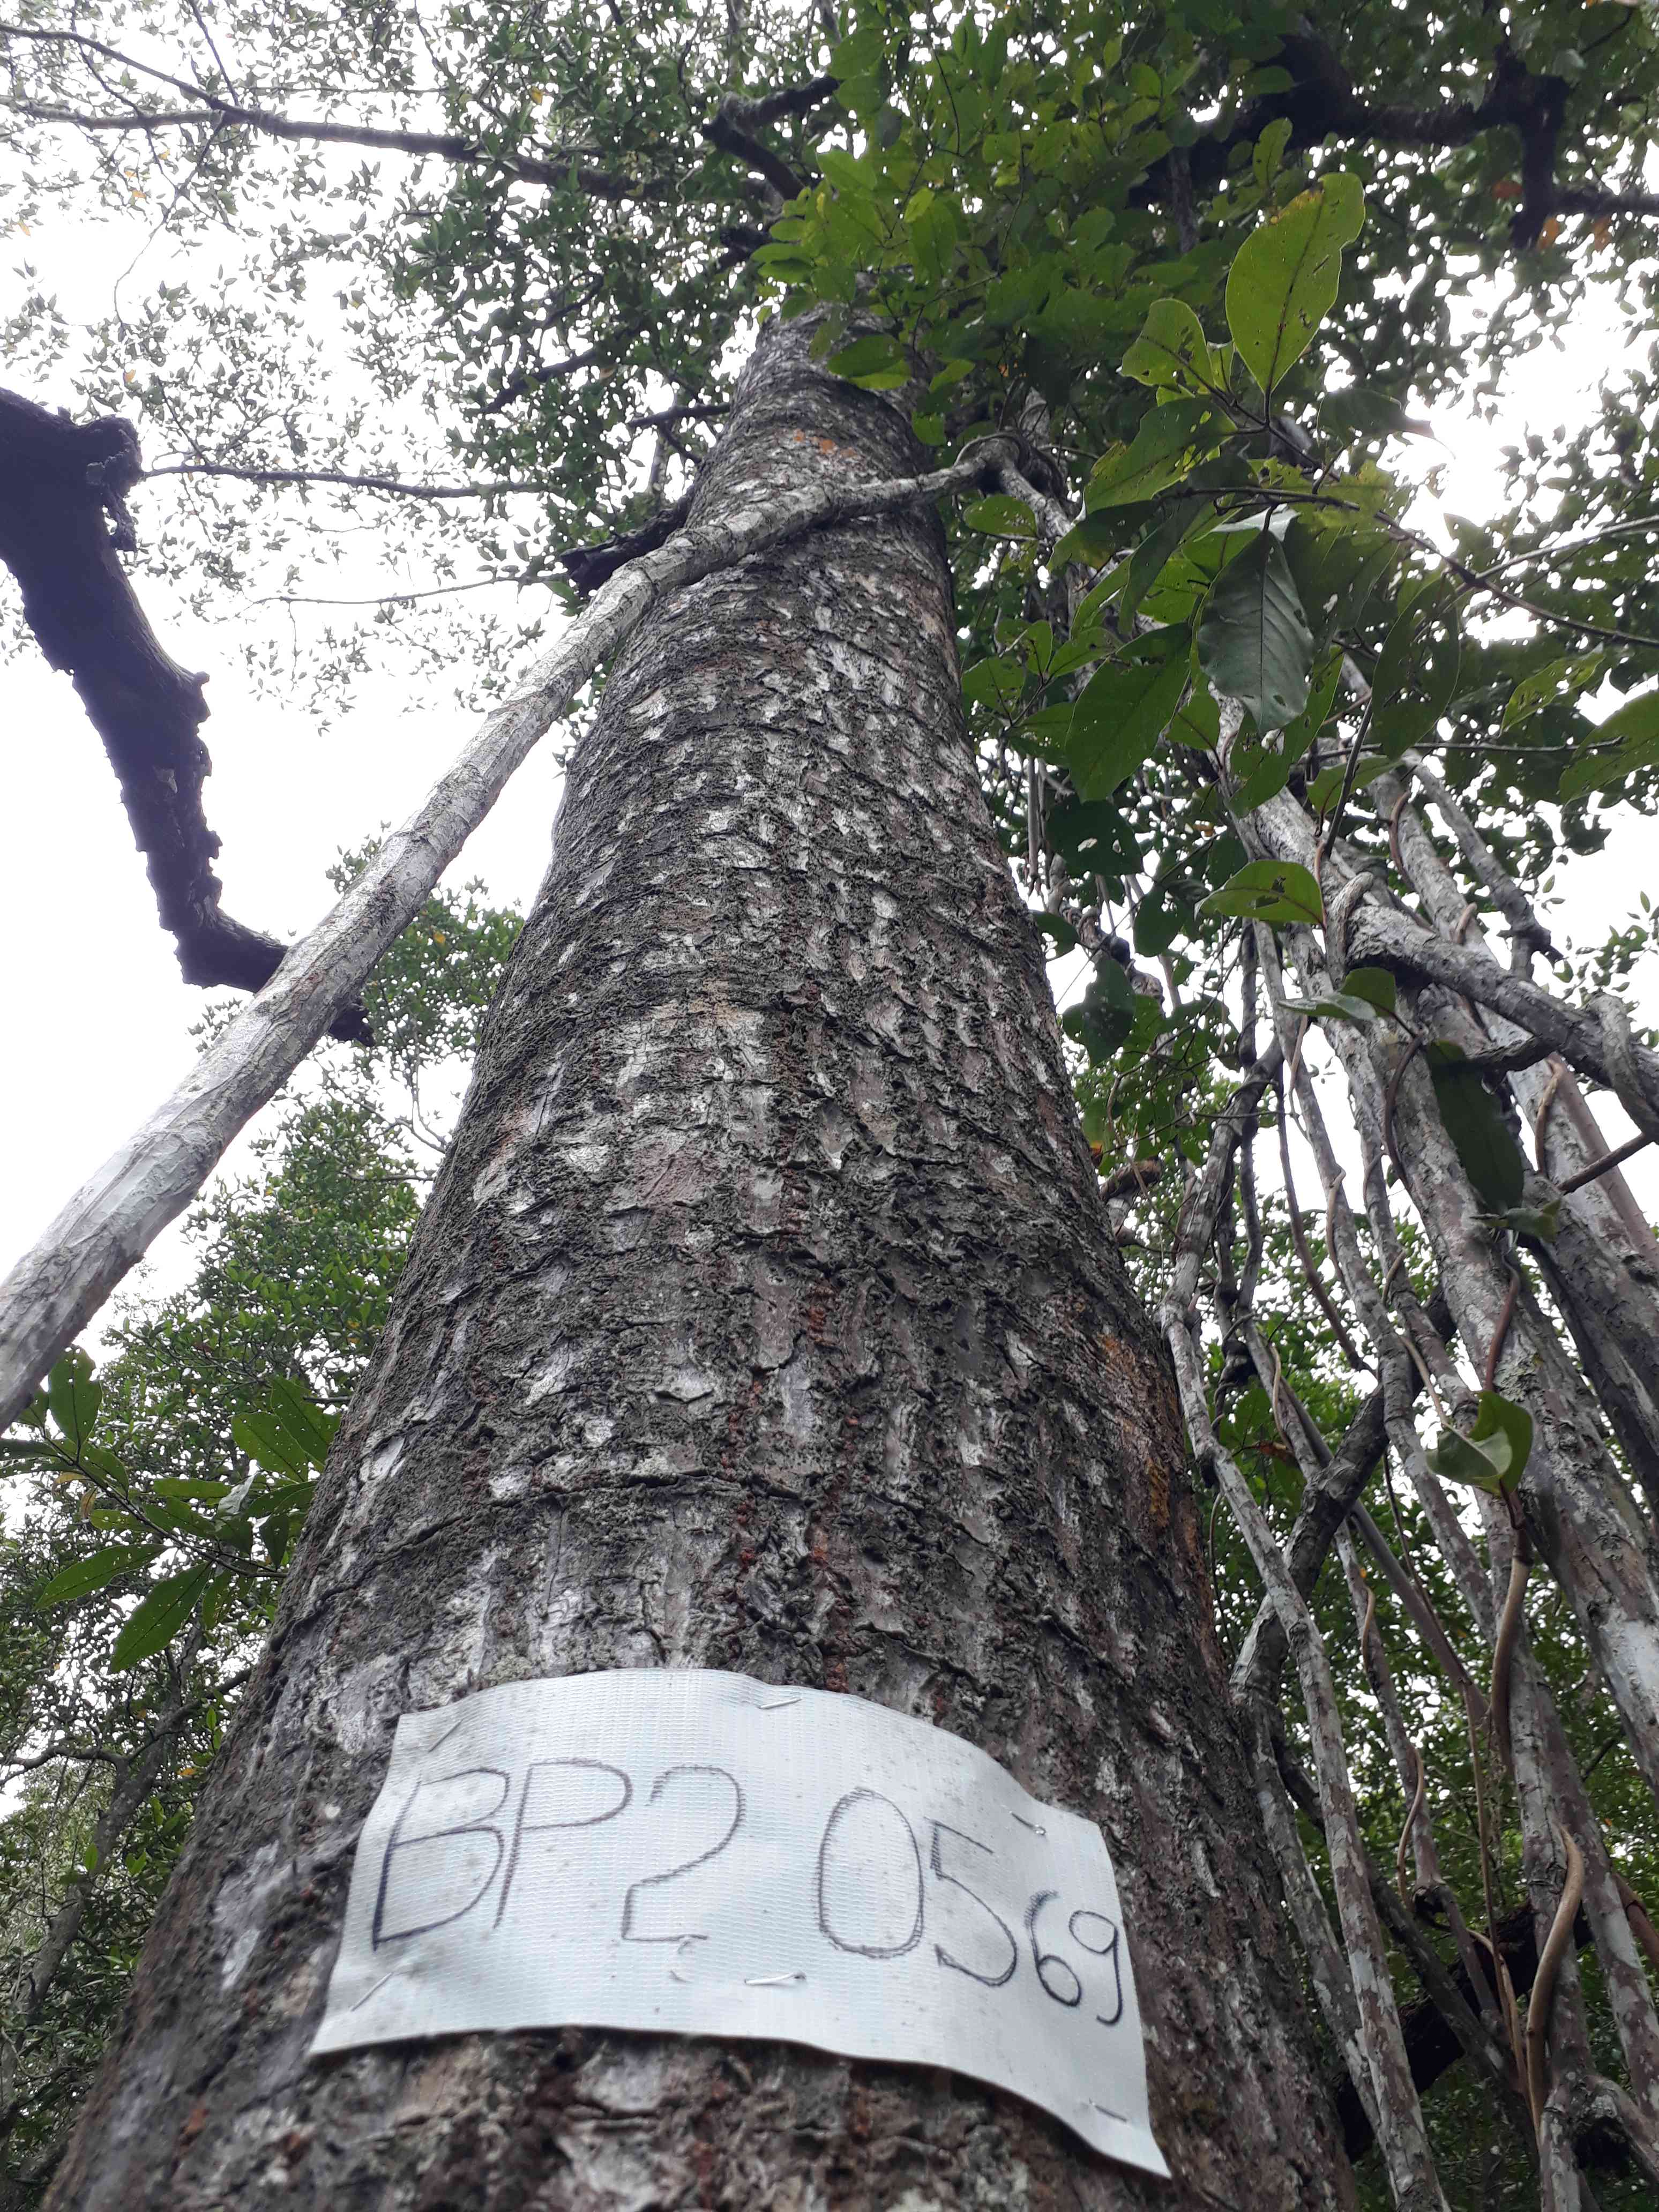 BP2 0569